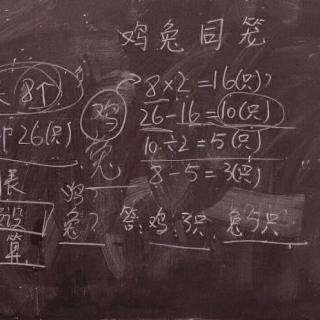 鸡兔同笼
头 8个
脚26(只)
鸡
兔
8×2=16(只)
26-16=10(只)
10÷2=5(只)
8-5=3(只)
鸡?
兔?
答:鸡:3只,兔5只
设
算